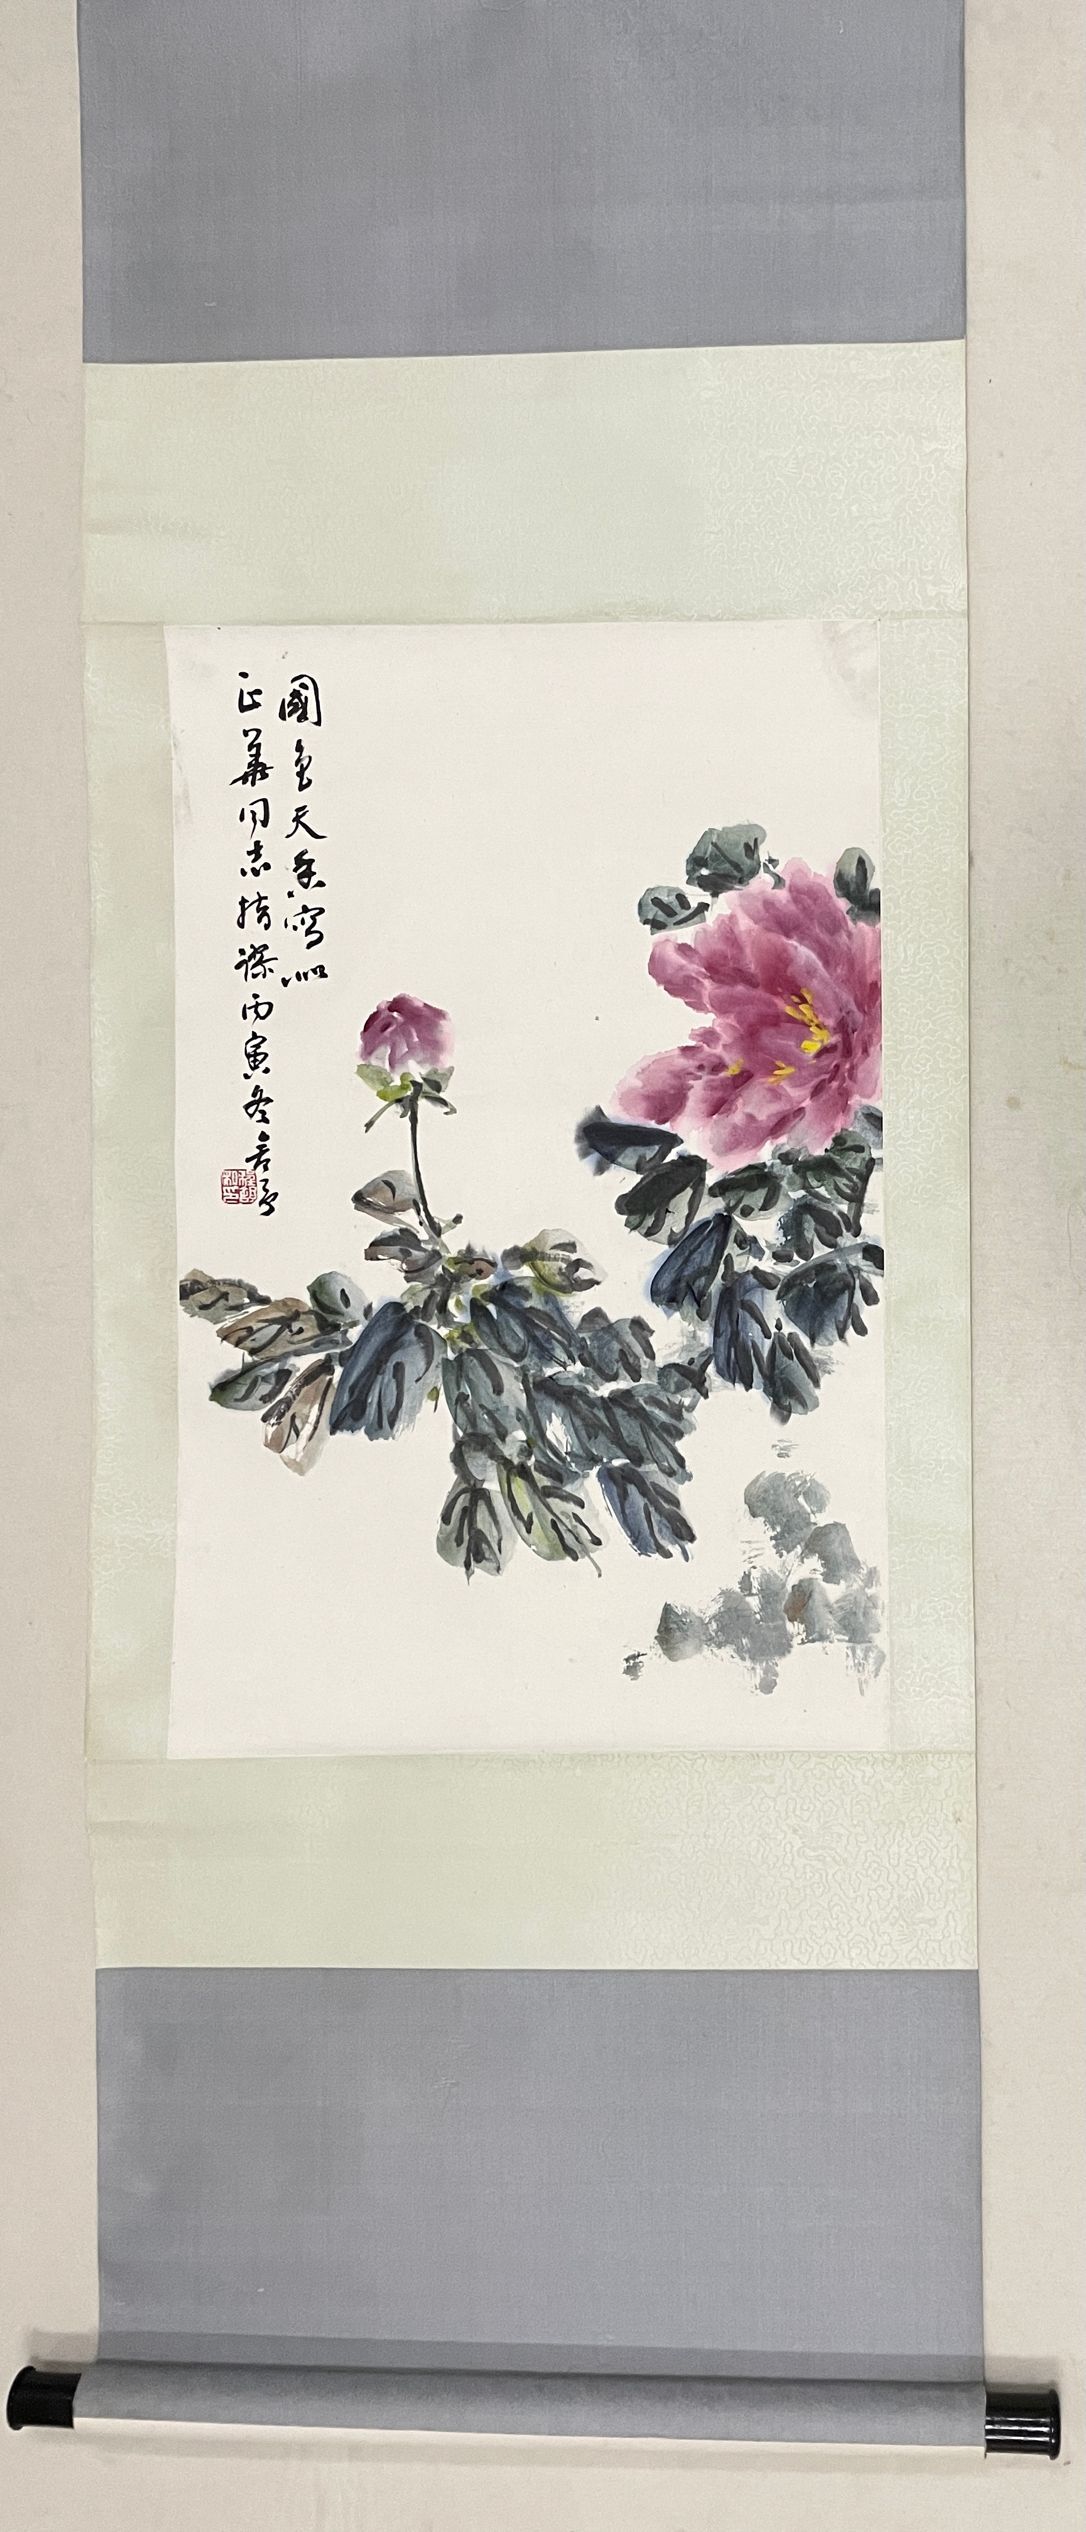 國色天香寫似
正華同志指謬丙寅冬